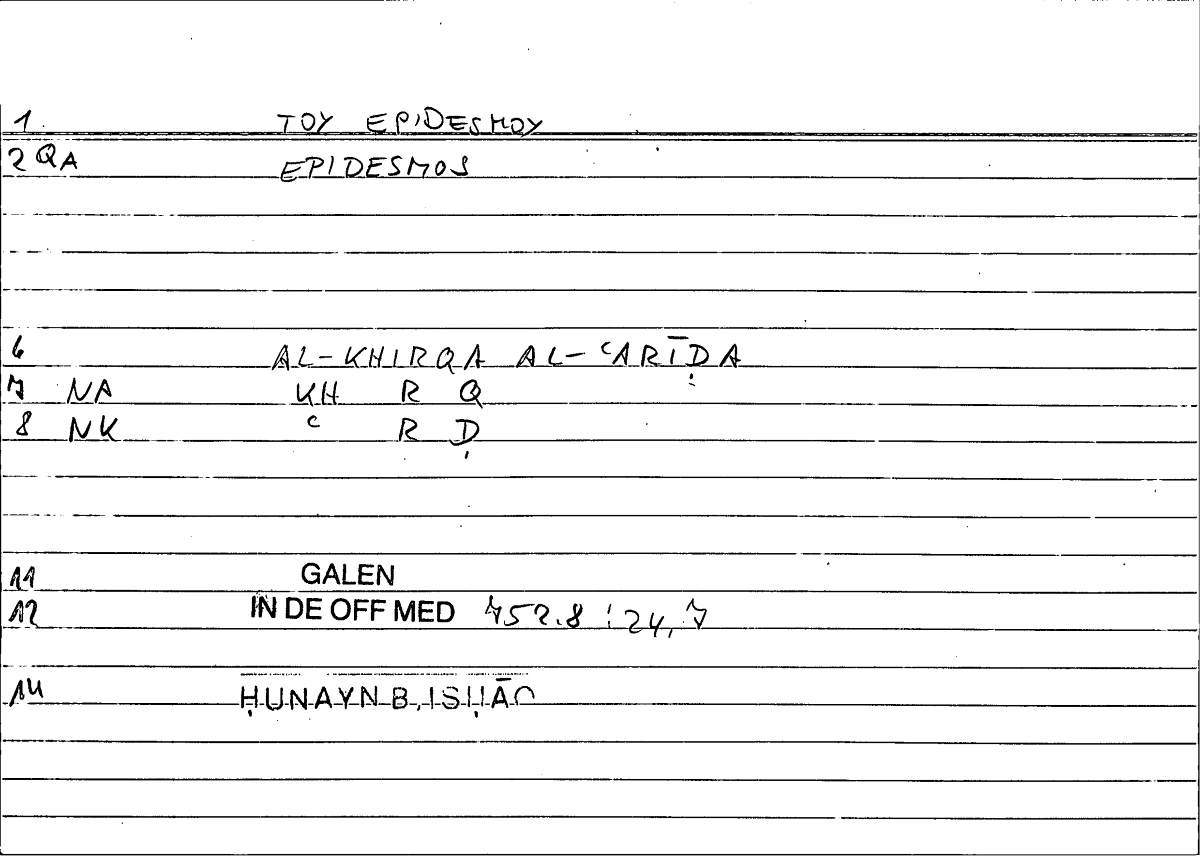 1. TOY EPIDESMOY
2 QA EPIDESMOS
6 AL-KHIRQA AL-ʿARĪḌA
7 NA KH R Q
8 NK ʿ R Ḍ
11 GALEN
12 IN DE OFF MED 752.8 : 24, 7
14 ḤUNAYN B. ISḤĀQ